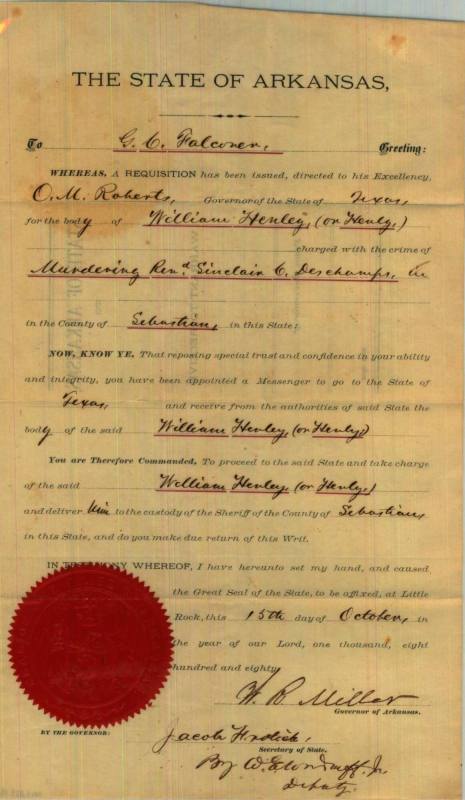 THE STATE OF ARKANSAS,
To G. C. Falconer, Greeting:
WHEREAS, A REQUISITION has been issued, directed to his Excellency,
O. M. Roberts, Governor of the State of Texas,
for the body of William Henley, (or Henly,)
charged with the crime of
Murdering Rend Sinclair C. Deschamps, in
in the County of Sebastian, in this State:
NOW, KNOW YE, That reposing special trust and confidence in your ability
and integrity, you have been appointed a Messenger to go to the State of
Texas, and receive from the authorities of said State the
body of the said William Henley, (or Henly,)
You are Therefore Commanded, To proceed to the said State and take charge
of the said William Henley, (or Henly,)
and deliver him to the custody of the Sheriff of the County of Sebastian,
in this State, and do you make due return of this Writ.
IN TESTIMONY WHEREOF, I have hereunto set my hand, and caused
the Great Seal of the State, to be affixed, at Little
Rock, this 15th day of October, in
the year of our Lord, one thousand, eight
hundred and eighty.
W. R. Miller
Governor of Arkansas.
BY THE GOVERNOR:
Jacob Frolich,
Secretary of State.
By W. E. Woodruff, Jr.
Deputy.